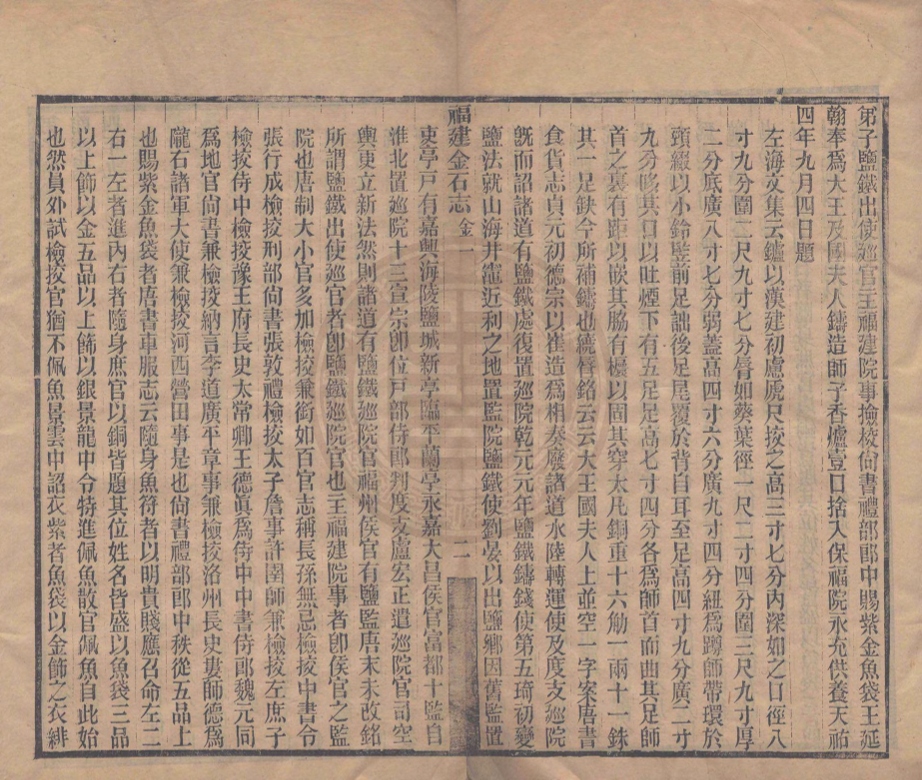 弟子鹽鐵出使巡官主福建院事撿校尚書禮部郎中賜紫金魚袋王延
翰奉爲大王及國夫人鑄造師子香爐壹口捨入保福院永充供養天祐
四年九月四日題
左海文集云鑪以漢建初慮俿尺挍之高三寸七分內深如之口徑八
寸九分圍二尺九寸七分脣如葵葉徑一尺二寸四分圍三尺九寸厚
二分底廣八寸七分弱蓋高四寸六分廣九寸四分紐爲蹲師帶環於
頭綴以小鈴竪前足詘後足尾覆於背自耳至足高四寸九分廣二寸
九分哆其口以吐煙下有五足足高七寸四分各爲師首而曲其足師
首之裏有距以嵌其脇有橛以固其穿大凡銅重十六觔一兩十一銖
其一足鈌今所補鑄也繞脣銘云云大王國夫人上並空一字案唐書
食貨志貞元初德宗以崔造爲相奏廢諸道水陸轉運使及度支巡院
旣而詔諸道有鹽鐵處復置巡院乾元元年鹽鐵鑄錢使第五琦初變
鹽法就山海井竈近利之地置監院鹽鐵使劉晏以以出鹽鄉因舊監置
福建金石志 金一 二
吏亭戸有嘉興海陵鹽城新亭臨平蘭亭永嘉大昌侯官富都十監自
淮北置巡院十三宣宗卽位戸部侍郎判度支盧宏正遣巡院官司空
輿更立新法然則諸道有鹽鐵巡院官福州侯官有鹽監唐末未改銘
所謂鹽鐵出使巡官者卽鹽鐵巡院官也主福建院事者卽侯官之監
院也唐制大小官多加檢挍兼銜如百官志稱長孫無忌檢挍中書令
張行成檢挍刑部尚書張敦禮檢挍太子詹事許圉師兼檢挍左庶子
檢挍侍中檢挍豫王府長史太常卿王德眞爲侍中中書侍郎魏元同
爲地官尚書兼檢挍納言李道廣平章事兼檢挍洛州長史婁師德爲
隴右諸軍大使兼檢挍河西營田事是也尚書禮部郎中秩從五品上
也賜紫金魚袋者唐書車服志云隨身魚符者以明貴賤應召命左二
右一左者進內右者隨身庶官以銅皆題其位姓名皆盛以魚袋三品
以上飾以金五品以上飾以銀景龍中令特進佩魚散官佩魚自此始
也然員外試檢挍官猶不佩魚景雲中詔衣紫者魚袋以金飾之衣緋